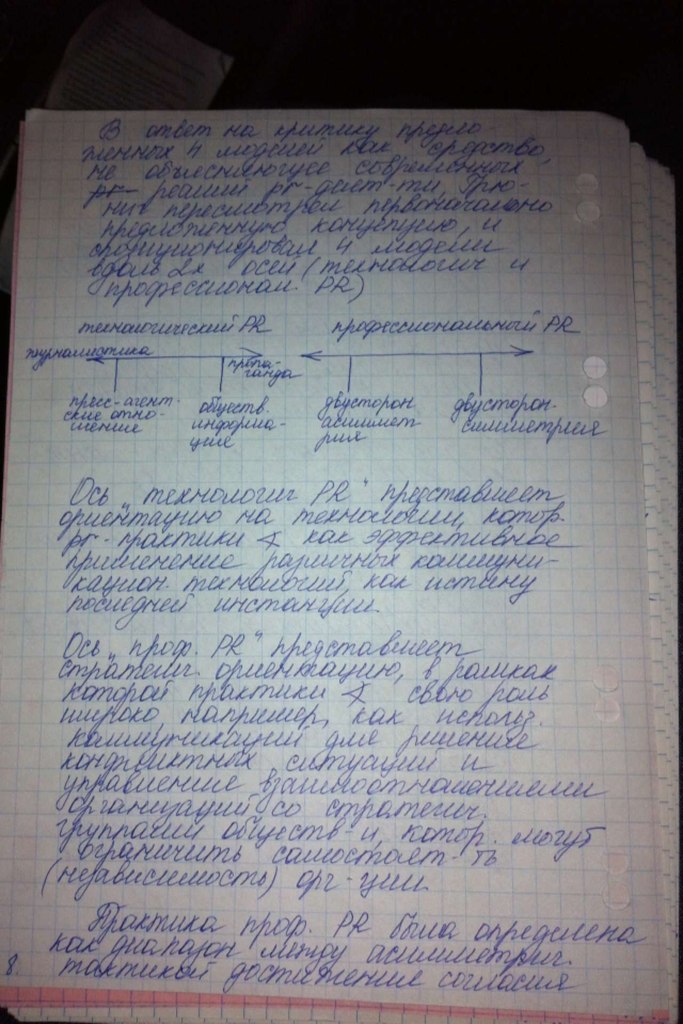 В ответ на критику предло-
женных 4 моделей как средство,
не объясняющее современных
pr- реалий pr-деят-ти, Грю-
ниг пересмотрел первоначально
предложенную концепцию, и
спозиционировал 4 модели
вдоль 2х осей (технологич и
профессионал. PR)
технологический PR профессиональный PR
журналистика
пропа-
ганда
пресс-агент-
ские отно-
шения
обществ.
информа-
ция
двусторон
асиммет
рия
двусторон-
симметрия
Ось „технологич PR" представляет
ориентацию на технологии, котор.
pr-практики как эффективное
применение различных коммуни-
кацион. технологий, как истину
последней инстанции.
Ось „проф. PR" представляет
стратегич. ориентацию, в рамках
которой практики свою роль
широко например, как использ.
коммуникаций для решения
конфликтных ситуаций и
управления взаимоотношениями
организаций со стратегич.
группами обществ-и, котор. могут
ограничить самостоят-ть
(независимость) орг-ции.
Практика проф. PR была определена
как диапазон между асимметрич.
8. тактикой достижения согласия